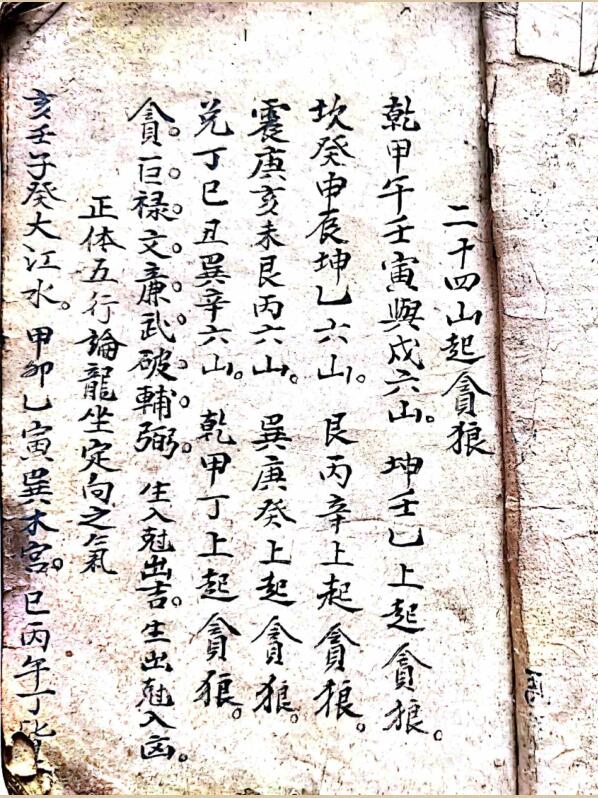 二十四山起貪狼
乾甲午壬寅與戌六山。坤壬乙上起貪狼。
坎癸申辰坤乙六山。艮丙辛上起貪狼。
震庚亥未艮丙六山。巽庚癸上起貪狼。
兌丁巳丑巽辛六山。乾甲丁上起貪狼。
貪。巨。祿。文。亷。武。破。輔。弼。生入尅出吉。生出尅入凶。
正体五行論龍坐定向之氣
亥壬子癸大江水。甲卯乙寅巽木宮。巳丙午丁